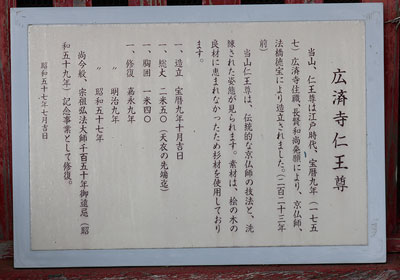 広済寺仁王尊
当山、仁王尊は江戸時代、宝暦九年（一七五
七）広済寺住職、長賢和尚発願により、京仏師、
法橋徳宝により造立されました。（二百二十三年
前）
当山仁王尊は、伝統的な京仏師の技法と、洗
練された姿態が見られます。素材は、桧の木の
良材に恵まれなかったため杉材を使用しており
ます。
一、造立　宝暦九年十月吉日
一、総丈　二米五〇（天衣の先端迄）
一、胸囲　一米四〇
一、修復　嘉永九年
〃　明治九年
〃　昭和五十七年
尚今般、宗祖弘法大師千百五十年御遠忌（昭
和五十九年）記念事業として修復。
昭和五十七年七月吉日